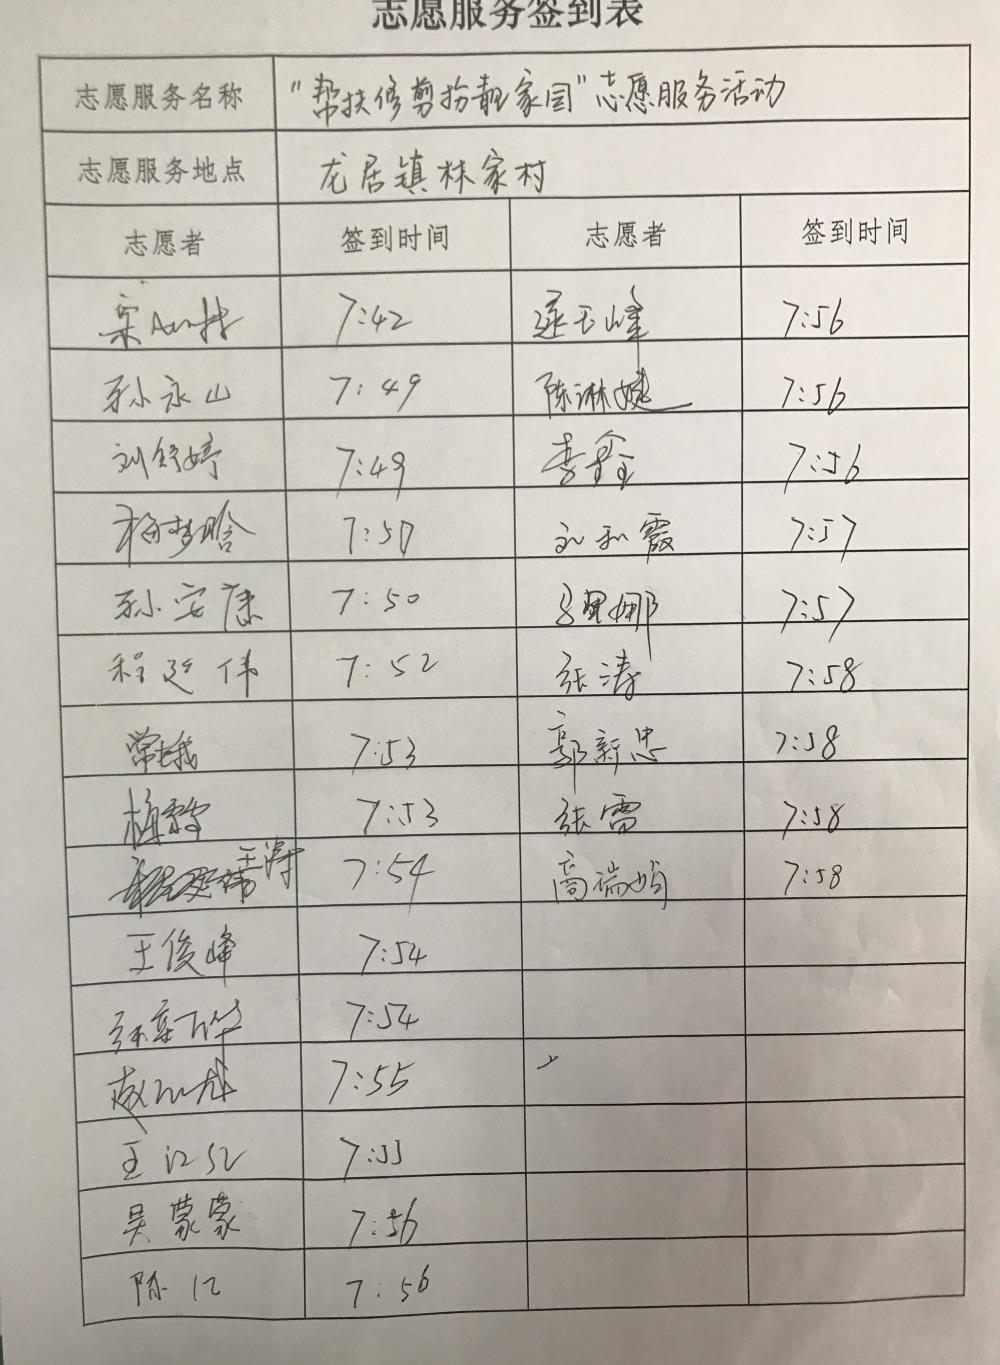 志愿服务签到表
志愿服务名称 "帮扶修剪扮靓家园"志愿服务活动
志愿服务地点 龙居镇林家村
志愿者 签到时间 志愿者 签到时间
7:42 玉峰 7:56
孙永山 7:49 陈淋婕 7:56
刘舒婷 7:49 李鑫 7:56
梅梦晗 7:50 7:57
孙安康 7:50 吕娜 7:57
程延伟 7:52 张涛 7:58
常娥 7:53 郭新忠 7:58
梅 7:53 张雷 7:58
王涛 7:54 高瑞娟 7:58
王俊峰 7:54
7:54
赵 7:55
王江红 7:55
吴蒙蒙 7:56
陈江 7:56